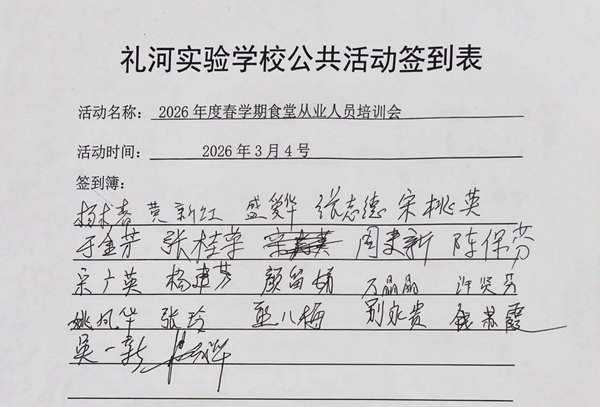 礼河实验学校公共活动签到表
活动名称： 2026年度春学期食堂从业人员培训会
活动时间： 2026年3月4号
签到簿：
杨术香 莫新红 盛爱华 张志德 宋桃英
于金芳 张桂华 周建新 陈保芬
宋广英 杨建芬 颜留娣 万晶晶 许贤芳
姚凤华 张玲 殷八梅 别永贵 钱苏霞
吴一新